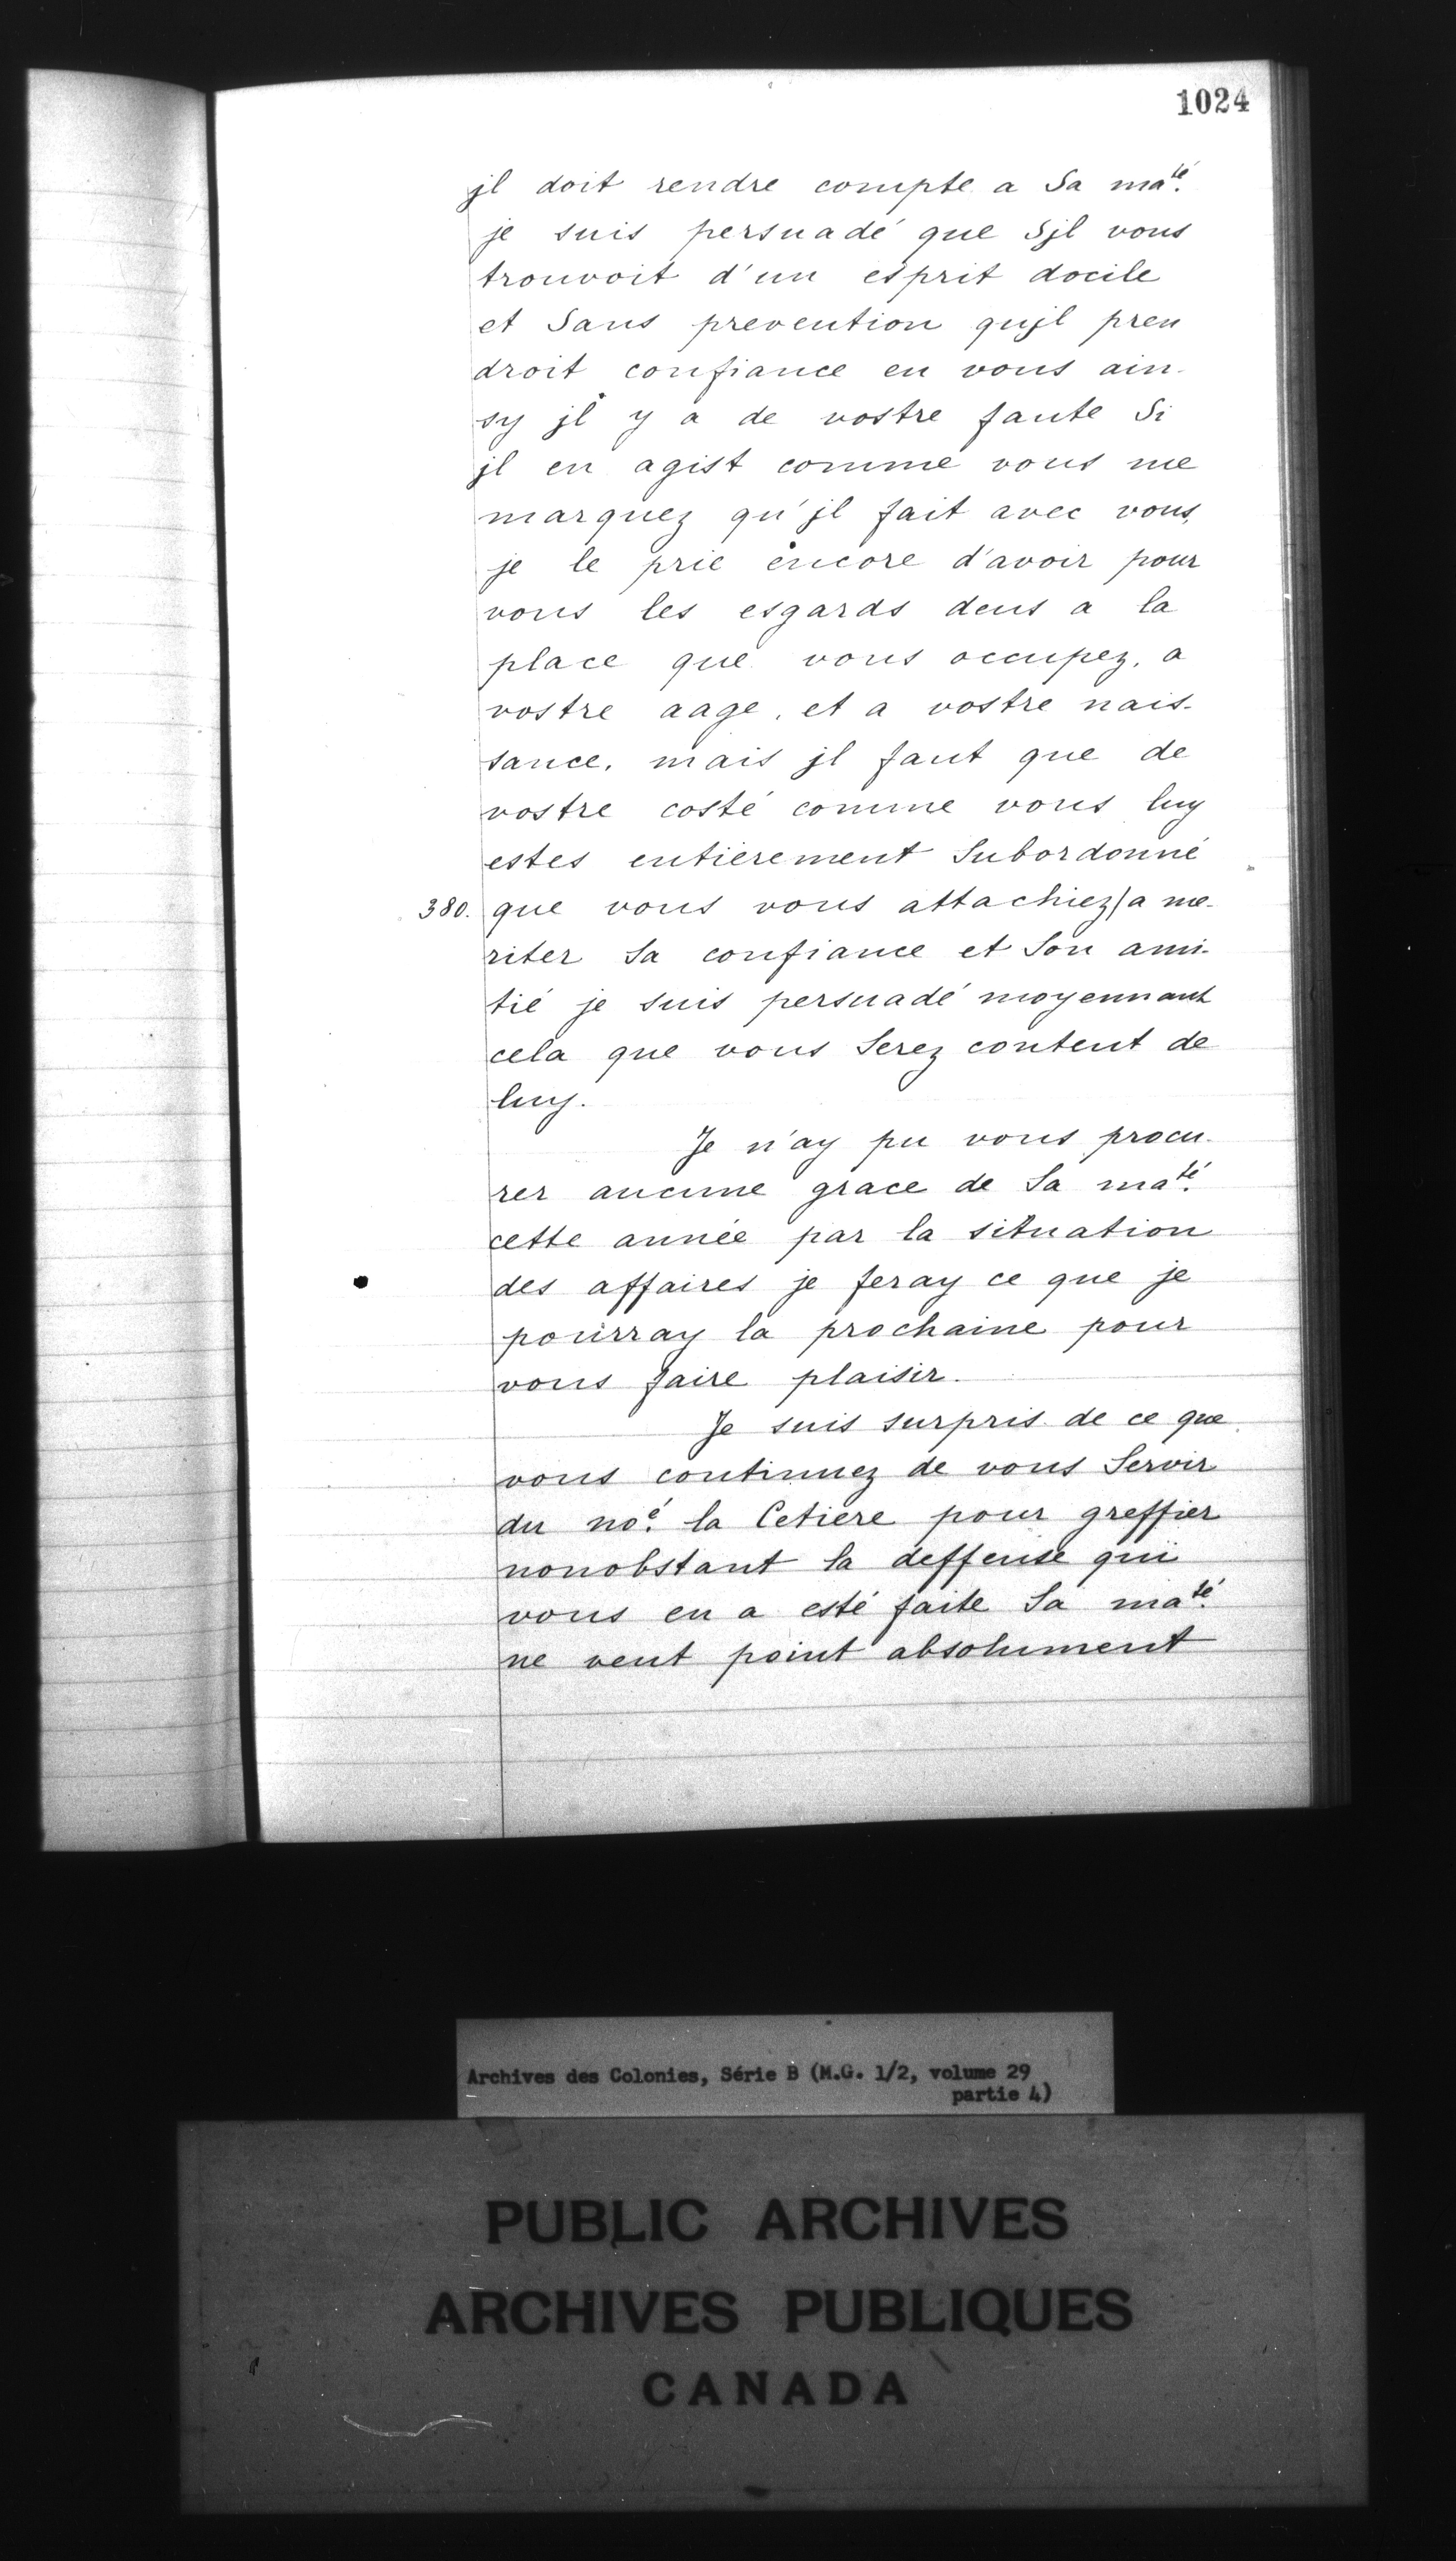 1024
jl doit rendre compte a Sa ma.té
je suis persuadé que Sjl vous
trouvoit d'un esprit docile
et Sans prevention qujl pren
droit confiance en vous ain-
sy jl y a de vostre faute Si
jl en agist comme vous me
marquez qu'jl fait avec vous,
je le prie encore d'avoir pour
vous les esgards deus a la
place que vous occupez, a
vostre aage, et a vostre nais-
sance, mais jl faut que de
vostre costé comme vous luy
estes entièrement Subordonné
380. que vous vous attachiez/a me-
riter Sa confiance et Son ami-
tié je suis persuadé moyennant
cela que vous Serez content de
luy.
Je n'ay pu vous procu-
rer aucune grace de Sa ma.té
cette année par la situation
des affaires je feray ce que je
pourray la prochaine pour
vous faire plaisir.
Je suis surpris de ce que
vous continuez de vous Servir
du no.é la Cetiere pour greffier
nonobstant la deffense qui
vous en a esté faite Sa ma.té
ne veut point absolument
Archives des Colonies, Série B (M.G. 1/2, volume 29
partie 4)
PUBLIC ARCHIVES
ARCHIVES PUBLIQUES
CANADA